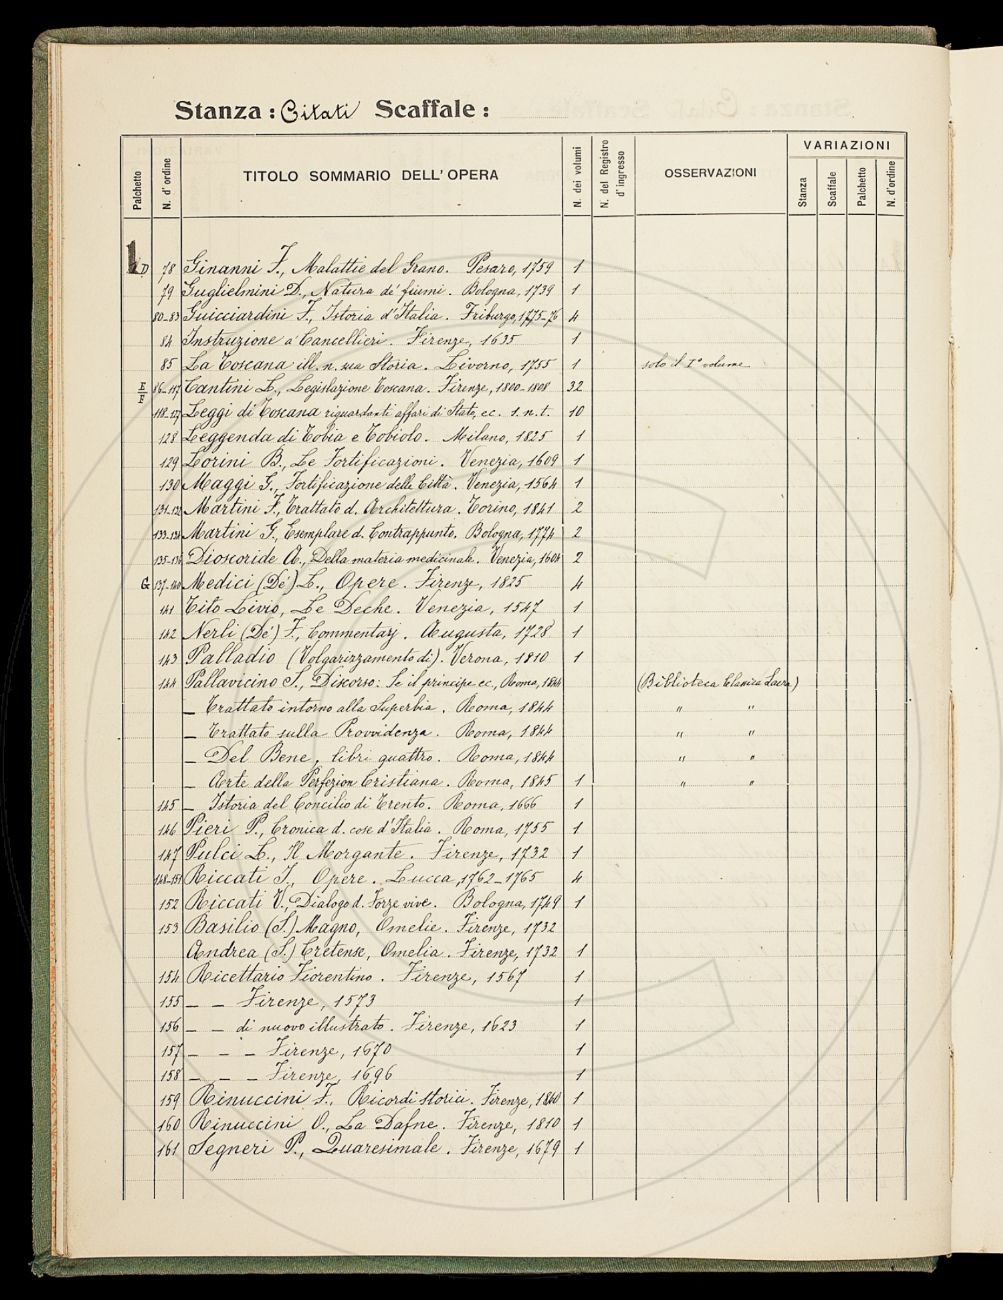 Stanza: Citati Scaffale:
Palchetto N. d'ordine TITOLO SOMMARIO DELL'OPERA N. dei volumi N. del Registro d'ingresso OSSERVAZIONI VARIAZIONI Stanza Scaffale Palchetto N. d'ordine
1 D 78 Ginanni F., Malattie del Grano. Pesaro, 1759 1
79 Guglielmini D., Natura de' fiumi. Bologna, 1739 1
80-83 Guicciardini F., Istoria d'Italia. Friburgo, 1775-76 4
84 Instruzione a' Cancellieri. Firenze, 1635 1
85 La Toscana ill. n. sua Storia. Livorno, 1755 1 solo il I° volume
E F 86-117 Cantini L., Legislazione Toscana. Firenze, 1800-1808 32
118-127 Leggi di Toscana riguardanti affari di Stato, ec. s. n. t. 10
128 Leggenda di Tobia e Tobiolo. Milano, 1825 1
129 Lorini B., Le Fortificazioni. Venezia, 1609 1
130 Maggi G., Fortificazione delle Città. Venezia, 1564 1
131-132 Martini F., Trattato d. Architettura. Torino, 1841 2
133-134 Martini G., Esemplare d. Contrappunto. Bologna, 1774 2
135-136 Dioscoride A., Della materia medicinale. Venezia, 1604 2
G 137-140 Medici (De') L., Opere. Firenze, 1825 4
141 Tito Livio, Le Deche. Venezia, 1547 1
142 Nerli (De') F., Commentarj. Augusta, 1728 1
143 Palladio (Volgarizzamento di). Verona, 1810 1
144 Pallavicino S., Discorso: Se il principe ec., Roma, 1844 (Biblioteca Classica Sacra)
— Trattato intorno alla Superbia. Roma, 1844 " "
— Trattato sulla Provvidenza. Roma, 1844 " "
— Del Bene, libri quattro. Roma, 1844 " "
— Arte della Perfezion Cristiana. Roma, 1845 1 " "
145 — Istoria del Concilio di Trento. Roma, 1666 1
146 Pieri P., Cronica d. cose d'Italia. Roma, 1755 1
147 Pulci L., Il Morgante. Firenze, 1732 1
148-151 Riccati J., Opere. Lucca, 1762-1765 4
152 Riccati V., Dialogo d. Forze vive. Bologna, 1749 1
153 Basilio (S.) Magno, Omelie. Firenze, 1732
Andrea (S.) Cretense, Omelia. Firenze, 1732 1
154 Ricettario Fiorentino. Firenze, 1567 1
155 — — Firenze, 1573 1
156 — — di nuovo illustrato. Firenze, 1623 1
157 — — — Firenze, 1670 1
158 — — — Firenze, 1696 1
159 Rinuccini F., Ricordi storici. Firenze, 1840 1
160 Rinuccini O., La Dafne. Firenze, 1810 1
161 Segneri P., Quaresimale. Firenze, 1679 1